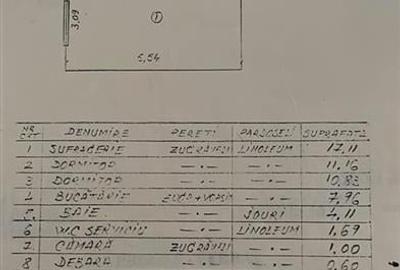 1
3,09
5,54
NR. CRT. DENUMIRE PERETI PARDOSELI SUPRAFATA
1 SUFRAGERIE ZUGRAVELI LINOLEUM 17,11
2 DORMITOR —·— —·— 11,16
3 DORMITOR —·— —·— 10,83
4 BUCĂTĂRIE ZUGR+VOPSIT —·— 7,96
5 BAIE —·— JOURI 4,11
6 W.C SERVICIU —·— LINOLEUM 1,69
7 CĂMARĂ ZUGRAVELI —·— 1,00
8 DEBARA —·— —·— 0,60